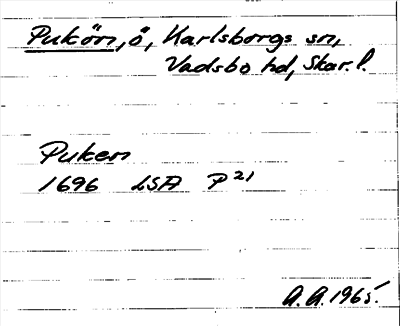 Pukön, ö, Karlsborgs sn,
Vadsbo hd, Skar. l.
Puken
1696 LSA P 21
A.A. 1965.